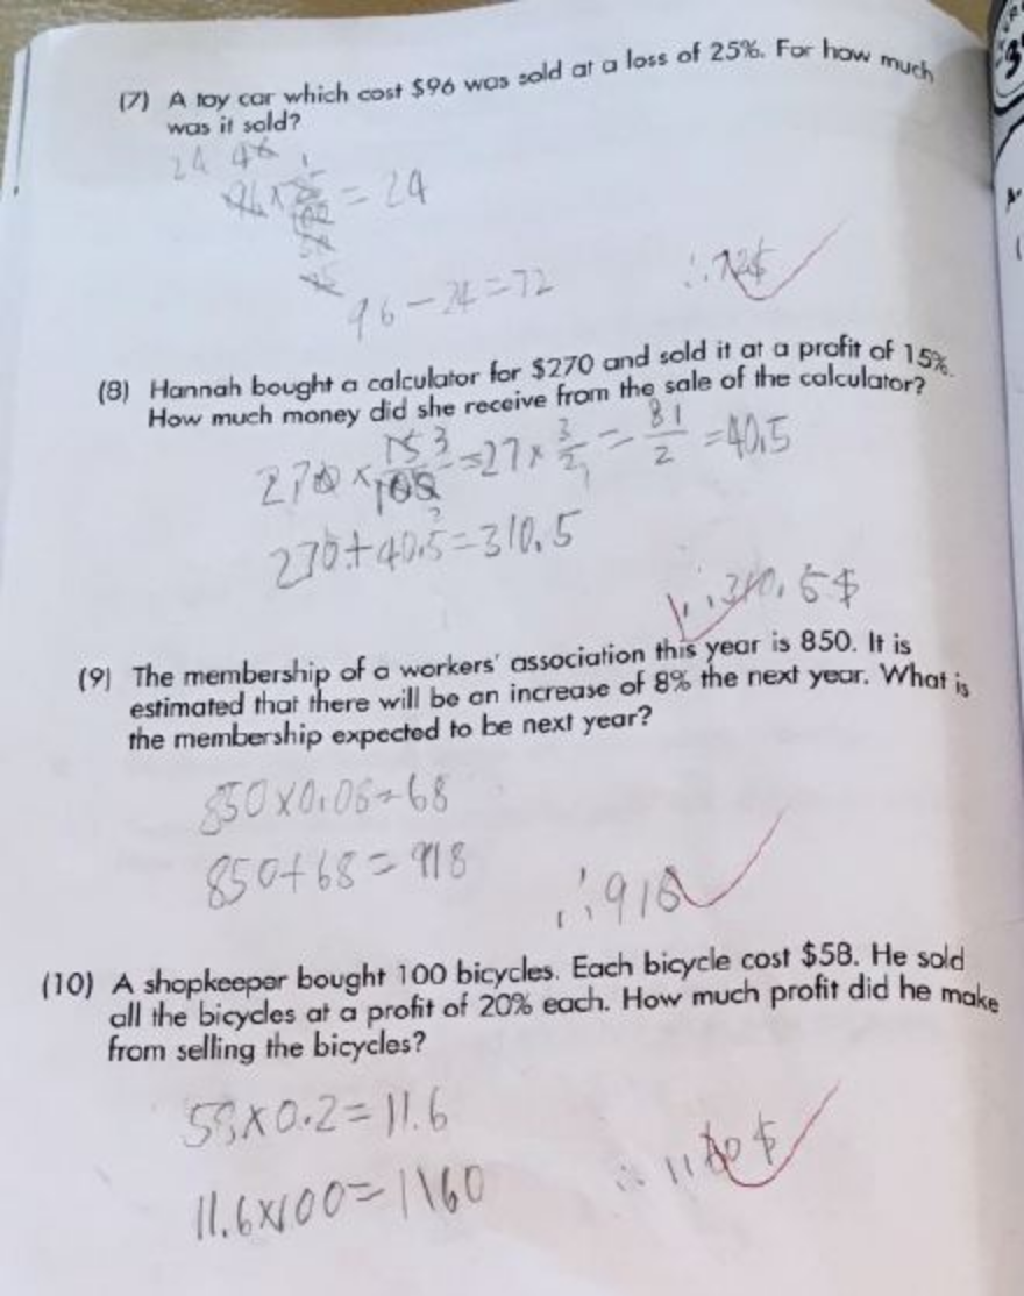 (7) A toy car which cost $96 was sold at a loss of 25%. For how much
was it sold?
24 48
= 24
96 - 24 = 72
∴ 72$
(8) Hannah bought a calculator for $270 and sold it at a profit of 15%.
How much money did she receive from the sale of the calculator?
270 × 15 3/100 = 27 × 3/2 = 81/2 = 40.5
270 + 40.5 = 310.5
∴ 310.5$
(9) The membership of a workers' association this year is 850. It is
estimated that there will be an increase of 8% the next year. What is
the membership expected to be next year?
850 × 0.08 = 68
850 + 68 = 918
∴ 918
(10) A shopkeeper bought 100 bicycles. Each bicycle cost $58. He sold
all the bicycles at a profit of 20% each. How much profit did he make
from selling the bicycles?
58 × 0.2 = 11.6
11.6 × 100 = 1160
∴ 1160$